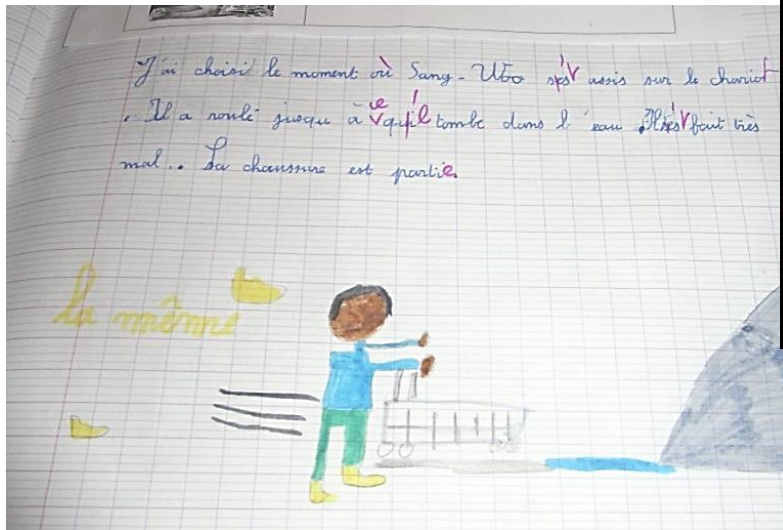 J'ai choisi le moment où Sang-Woo s'est assis sur le chariot
. Il a roulé jusqu'à ce qu'il tombe dans l'eau. Il s'est fait très
mal.. Sa chaussure est partie.
la même